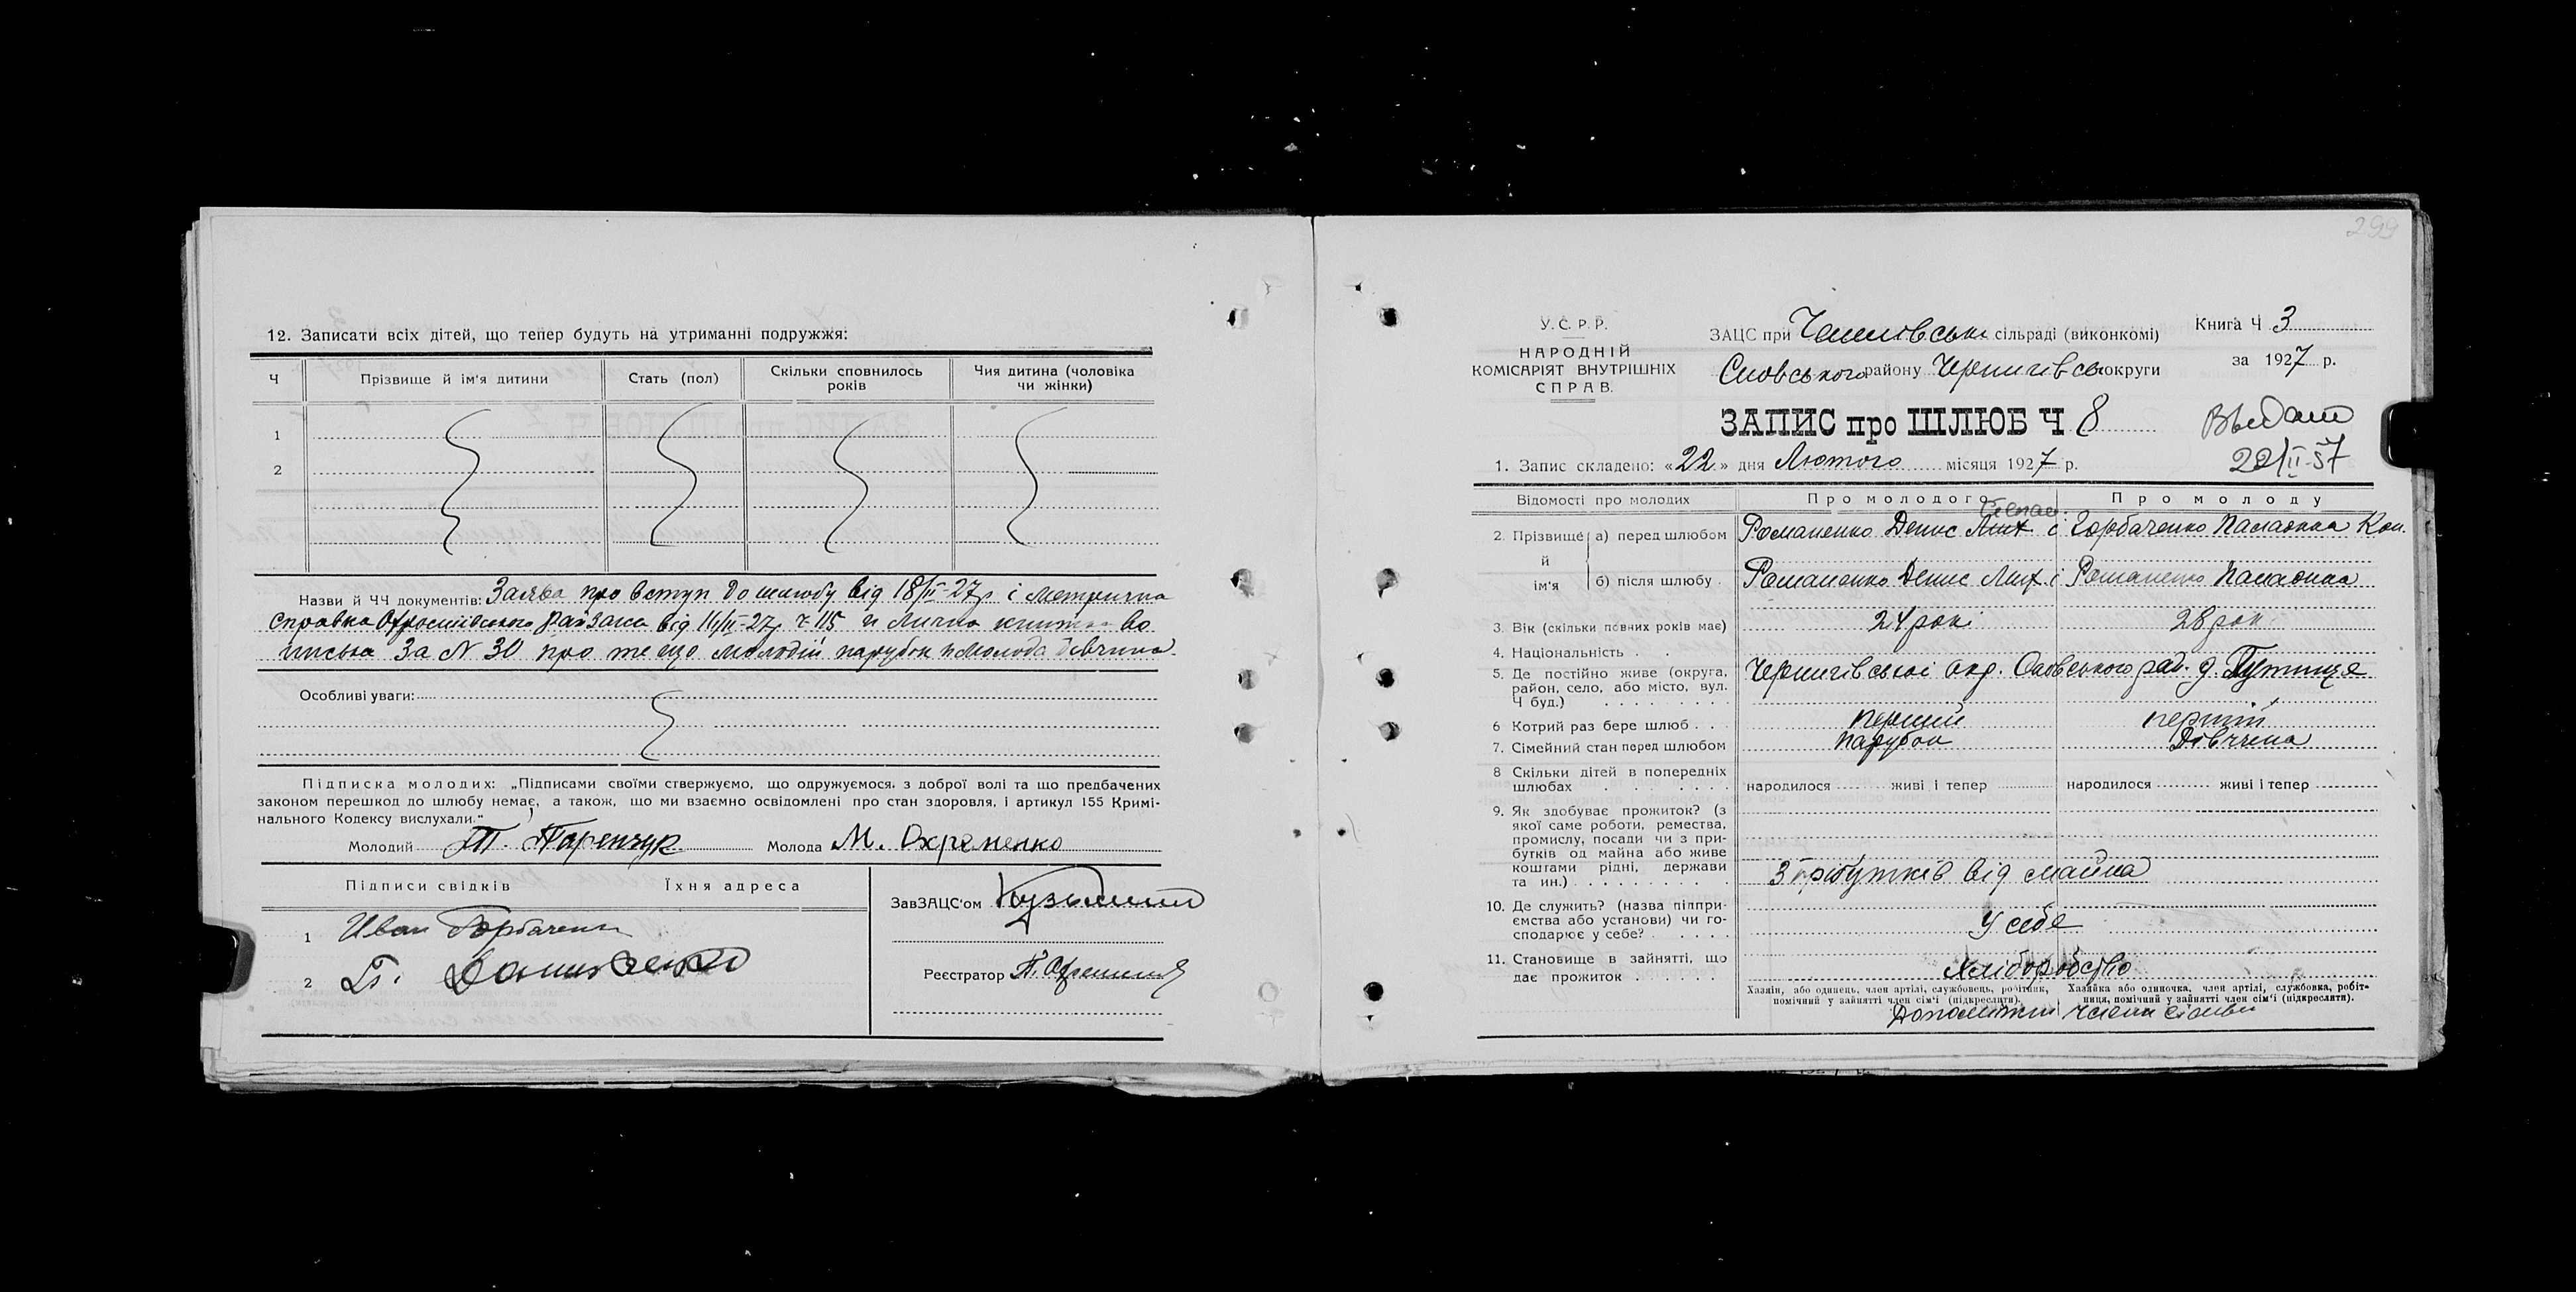 12. Записати всіх дітей, що тепер будуть на утриманні подружжя:
Ч Прізвище й ім'я дитини Стать (пол) Скільки сповнилось років Чия дитина (чоловіка чи жінки)
1
2
Назви й ЧЧ документів: Заява про вступ до шлюбу від 18/II-27р. і метрична
справка райзагса від 11/II-27р. ч 115 и Лична
за N 30 про те що молодий парубок и молода дівчина.
Особливі уваги:
Підписка молодих: „Підписами своїми стверджуємо, що одружуємося з доброї волі та що предбачених
законом перешкод до шлюбу немає, а також, що ми взаємно освідомлені про стан здоровля, і артикул 155 Кримі-
нального Кодексу вислухали."
Молодий Молода М. Охременко
Підписи свідків Їхня адреса
1 Иван Горбаченко
2
ЗавЗАЦС'ом
Реєстратор
299
У. С. Р. Р.
НАРОДНІЙ
КОМІСАРІЯТ ВНУТРІШНІХ
СПРАВ.
ЗАЦС при сільраді (виконкомі)
Сновського району Чернигівсь округи
Книга Ч 3
за 1927 р.
ЗАПИС про ШЛЮБ Ч 8
1. Запис складено: «22» дня Лютого місяця 1927 р.
Выдан
22/II-57
Відомості про молодих Про молодого Про молоду
Степан.
2. Прізвище й ім'я а) перед шлюбом Романенко Денис Мих. і Горбаченко Паланка Кон.
б) після шлюбу Романенко Денис Мих. і Романенко Паланка
3. Вік (скільки повних років має) 24 рокі 28 рок
4. Національність
5. Де постійно живе (округа, Чернигівської окр. Сновського рай. д. Путища
район, село, або місто, вул.
Ч буд.)
6 Котрий раз бере шлюб перший перший
7. Сімейний стан перед шлюбом парубок Дівчина
8 Скільки дітей в попередніх
шлюбах народилося живі і тепер народилося живі і тепер
9. Як здобуває прожиток? (з
якої саме роботи, ремества,
промислу, посади чи з при-
бутків од майна або живе
коштами рідні, держави
та ин.) З прибутків від майна
10. Де служить? (назва підпри-
ємства або установи) чи го-
сподарює у себе? У себе
11. Становище в зайнятті, що
дає прожиток Хліборобство
Хазяїн, або одинець, член артілі, службовець, робітник,
помічний у зайнятті член сім'ї (підкреслити).
Хазяйка або одиночка, член артілі, службовка, робіт-
ниця, помічний у зайнятті член сім'ї (підкреслити).
члени